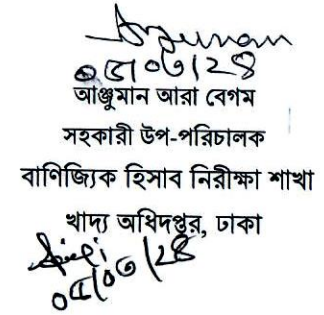 ০৫/০৩/২৪
আঞ্জুমান আরা বেগম
সহকারী উপ-পরিচালক
বাণিজ্যিক হিসাব নিরীক্ষা শাখা
খাদ্য অধিদপ্তর, ঢাকা